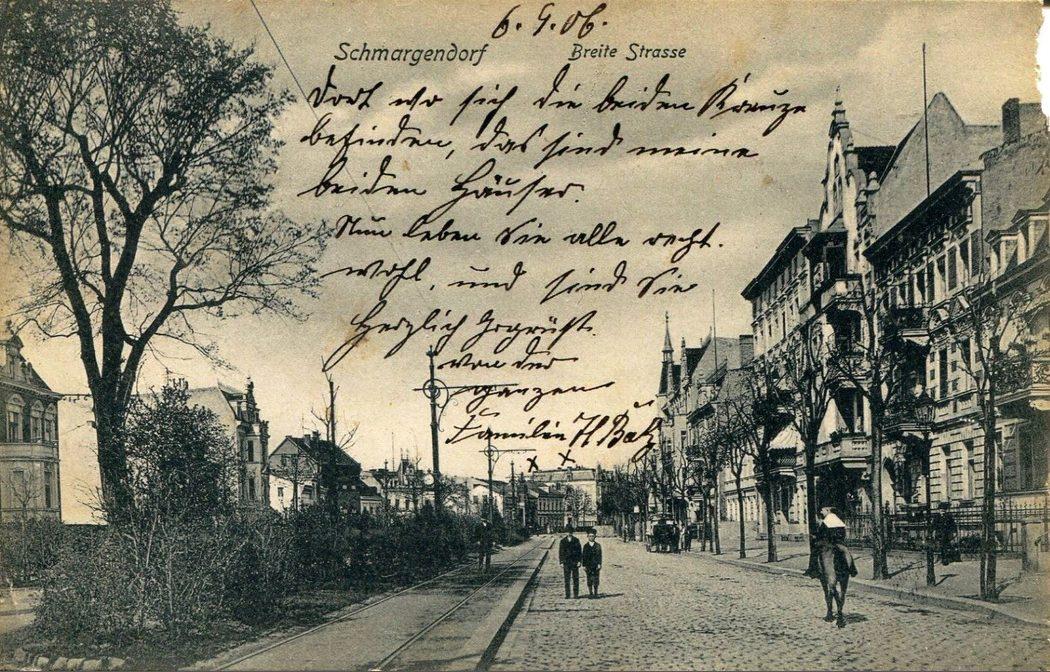 6.9.06.
Schmargendorf Breite Strasse
Dort wo sich die beiden Kreuze
befinden, das sind meine
beiden Häuser.
Nun leben Sie alle recht
wohl, und sind Sie
Herzlich Gegrüßt.
von der
ganzen
Familie H.
x x